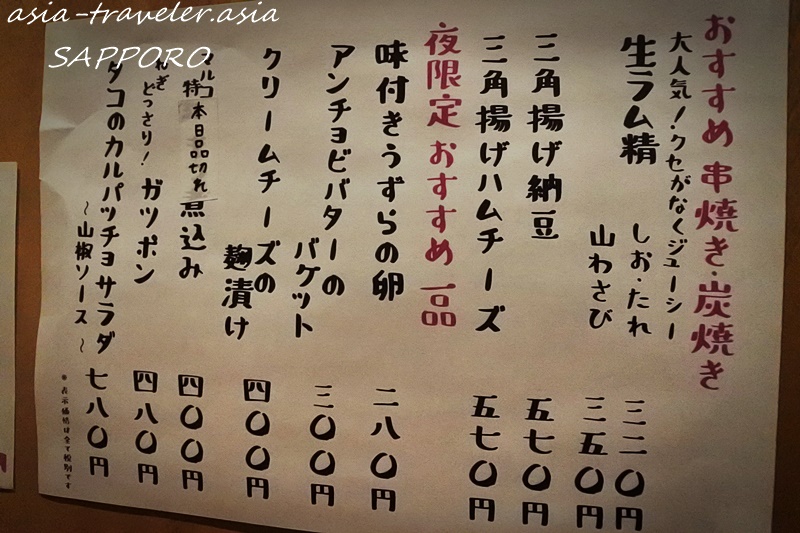 asia-traveler.asia
SAPPORO
おすすめ 串焼き・炭焼き
大人気!クセがなくジューシー
生ラム精 しお・たれ 三二〇円
山わさび 三五〇円
三角揚げ納豆 五七〇円
三角揚げハムチーズ 五七〇円
夜限定 おすすめ 一品
味付きうずらの卵 二八〇円
アンチョビバターの
バケット 三〇〇円
クリームチーズの
麹漬け 四〇〇円
マルコ
特 本日品切れ 煮込み 四〇〇円
ねぎどっさり!ガツポン 四八〇円
タコのカルパッチョサラダ
～山椒ソース～ 七八〇円
※表示価格は全て税別です